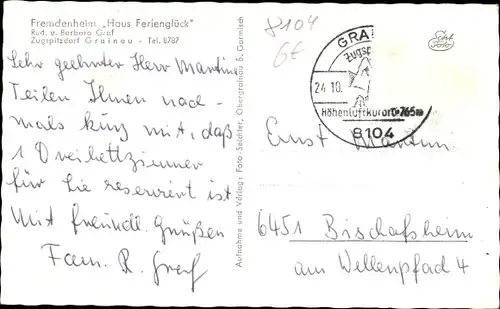 Fremdenheim „Haus Ferienglück"
Rud. u. Barbara Graf
Zugspitzdorf Grainau - Tel. 8787
8104
Sehr geehrter Herr Martin
Teilen Ihnen noch-
mals kurz mit, daß
1 Dreibettzimmer
für Sie reserviert ist
Mit freundl. Grüßen
Fam. R. Graf
Aufnahme und Verlag: Foto-Seichter, Obergrainau b. Garmisch
Echt
Foto
GRAI
Zugsp
24.10.
Höhenluftkurort 765m
8104
Ernst Martin
6451 Bischofsheim
am Wellenpfad 4